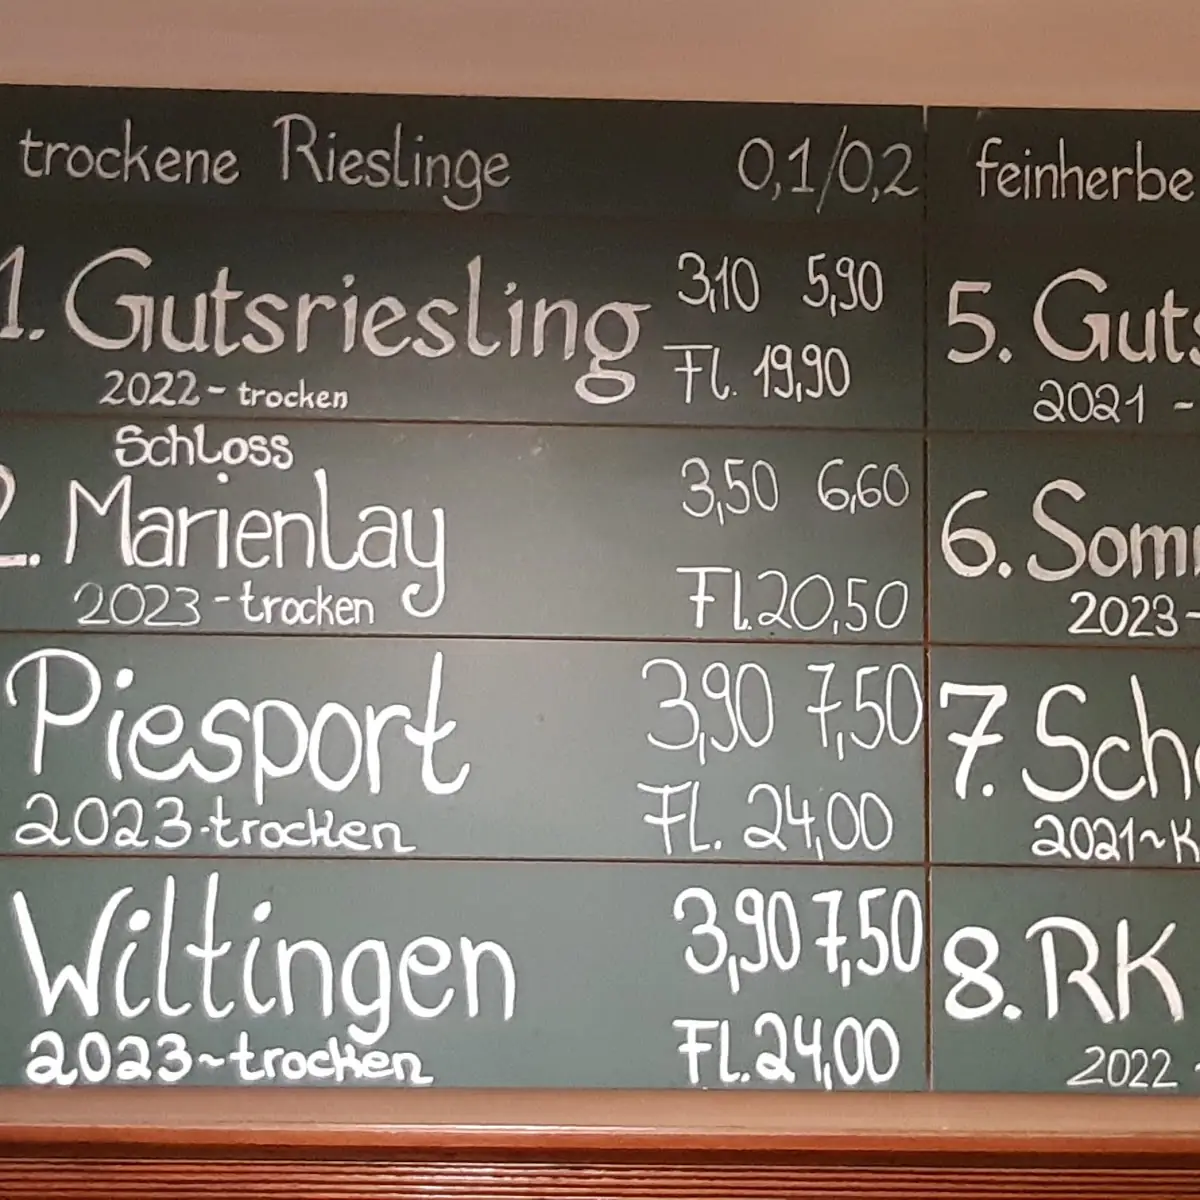 trockene Rieslinge 0,1/0,2
1. Gutsriesling 3,10 5,90
2022 - trocken Fl. 19,90
Schloss
2. Marienlay 3,50 6,60
2023 - trocken Fl. 20,50
Piesport 3,90 7,50
2023 - trocken Fl. 24,00
Wiltingen 3,90 7,50
2023 ~ trocken Fl. 24,00
feinherbe
5. Guts
2021 -
6. Som
2023 -
7. Sch
2021 ~ K
8. RK
2022 -